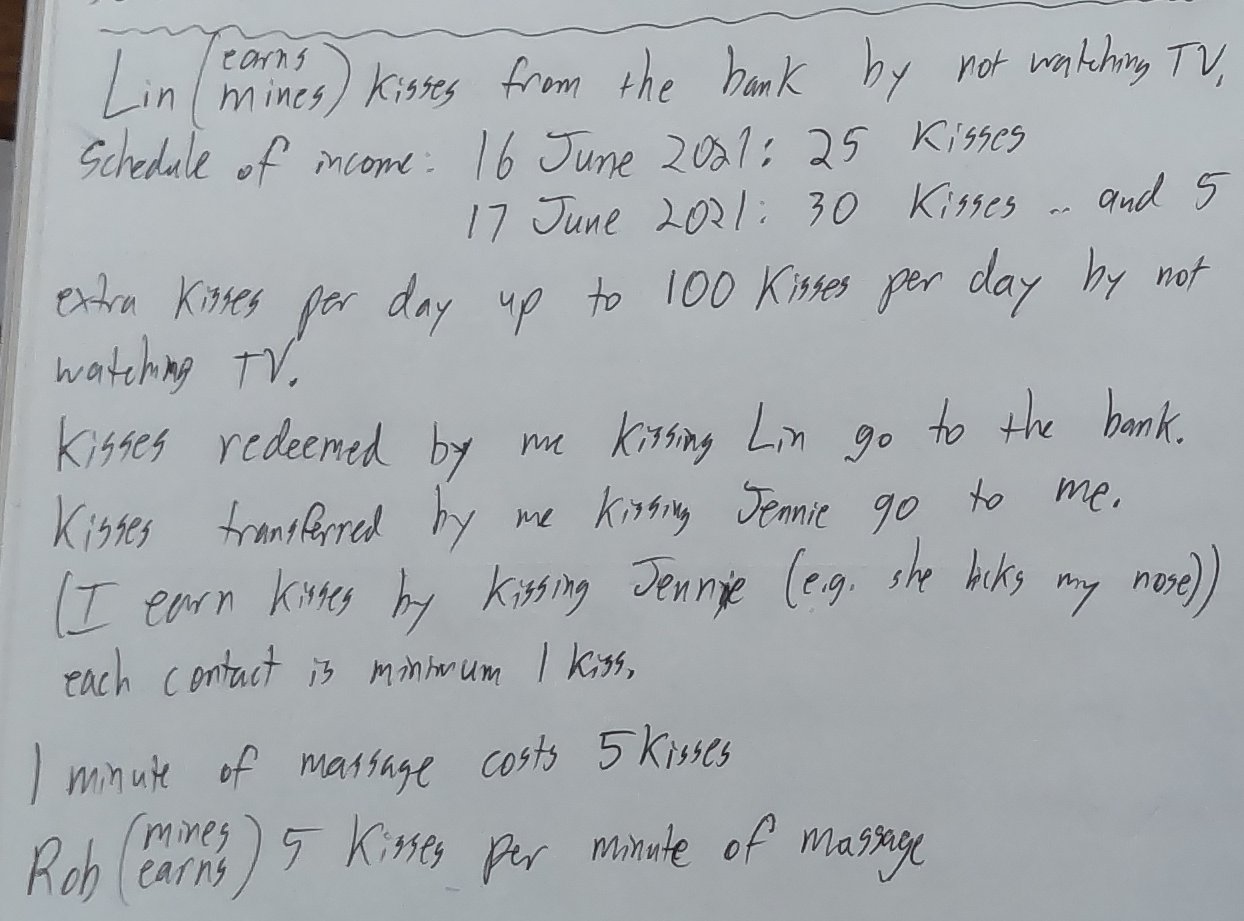 Lin (earns mines) Kisses from the bank by not watching TV.
Schedule of income: 16 June 2021: 25 Kisses
17 June 2021: 30 Kisses .. and 5
extra Kisses per day up to 100 Kisses per day by not
watching TV.
Kisses redeemed by me Kissing Lin go to the bank.
Kisses transferred by me Kissing Jennie go to me.
(I earn Kisses by Kissing Jennie (e.g. she licks my nose))
each contact is minimum 1 Kiss.
1 minute of massage costs 5 Kisses
Rob (mines earns) 5 Kisses per minute of massage